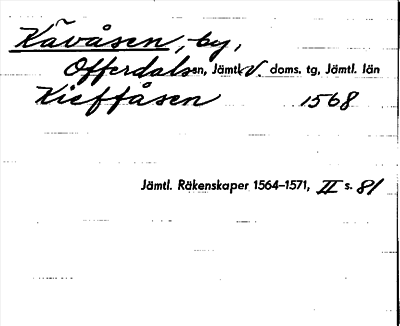 Kävåsen, by,
Offerdals sn, Jämtl. V. doms. tg, Jämtl. län
Kieffåsen 1568
Jämtl. Räkenskaper 1564–1571, II s. 81